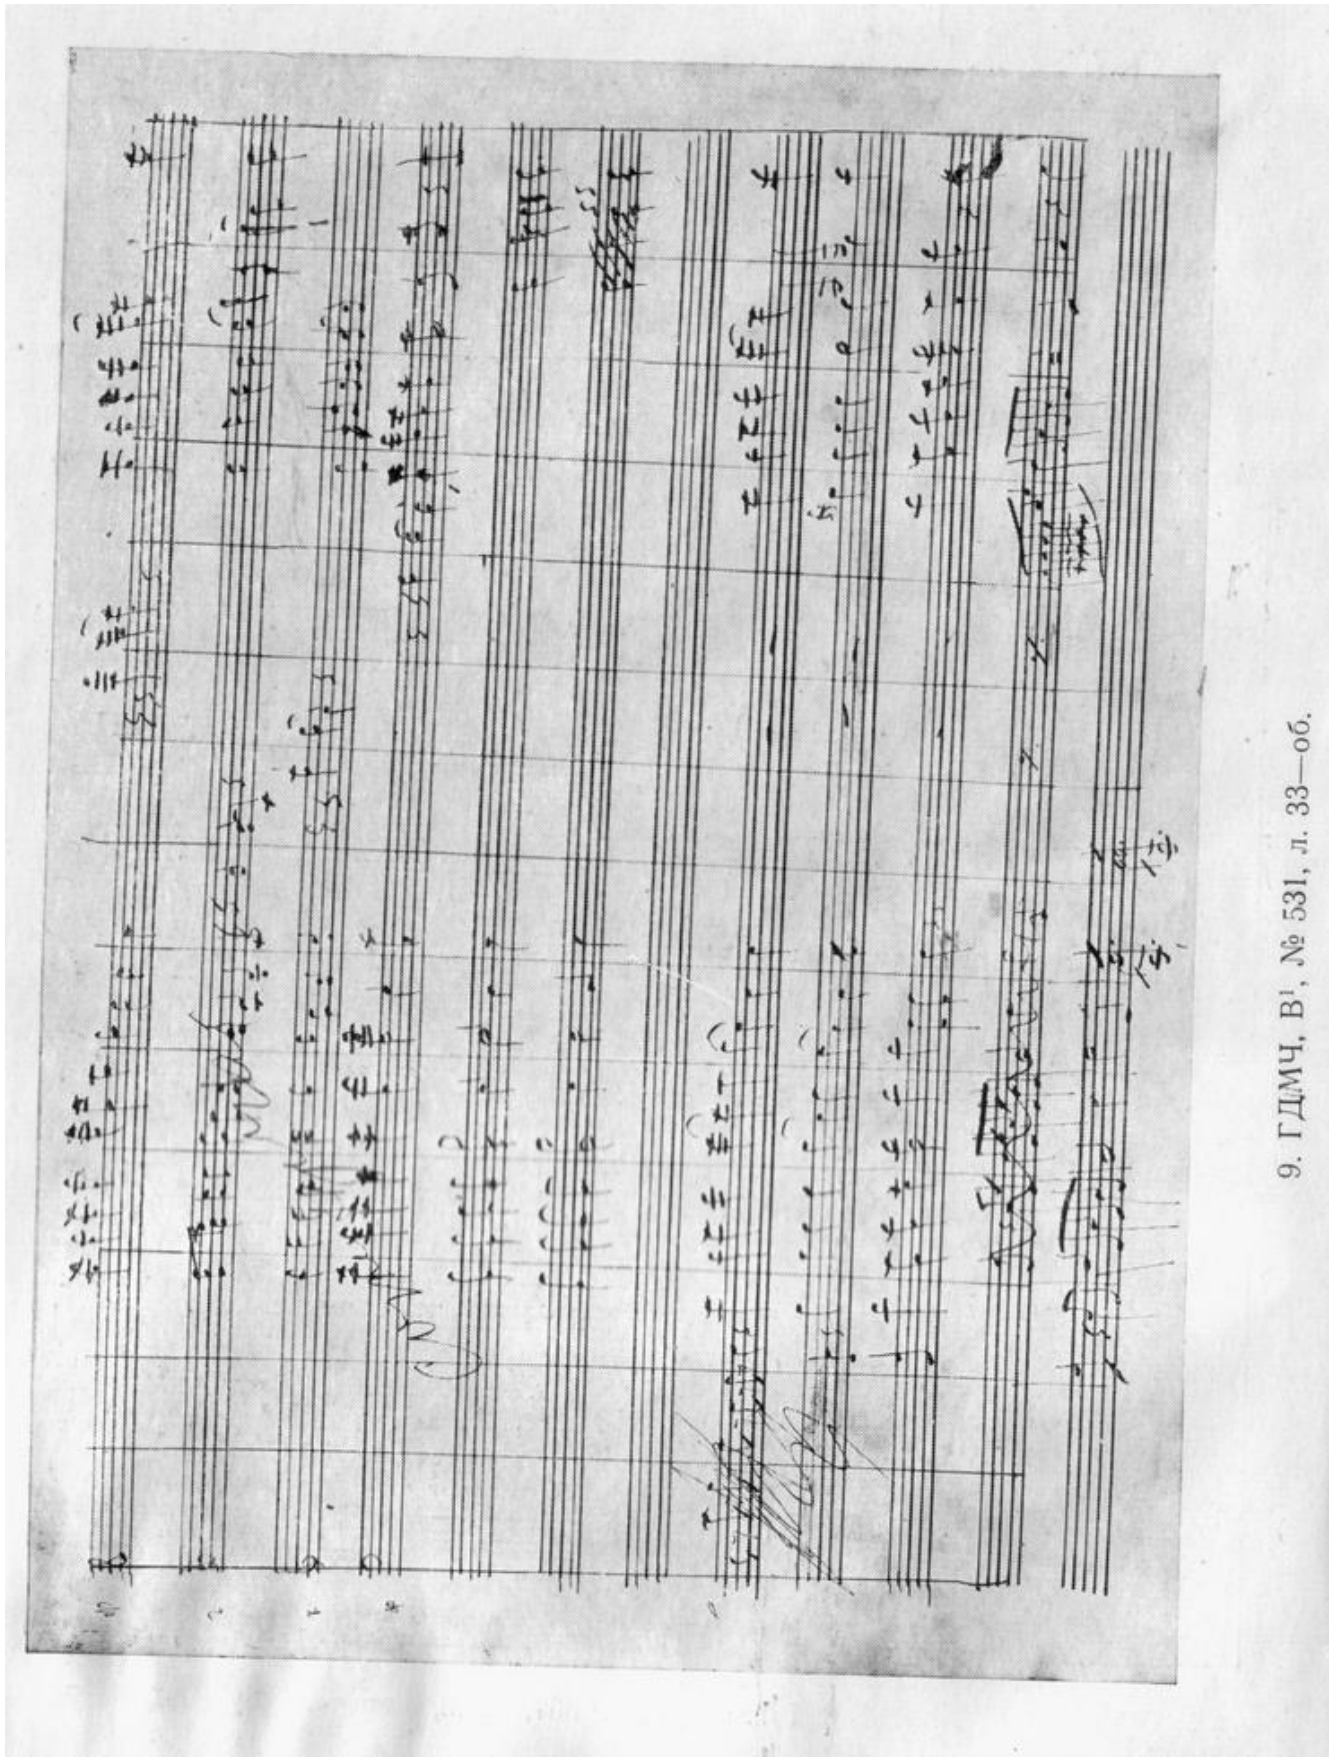 9. ГДМЧ, В¹, № 531, л. 33—об.